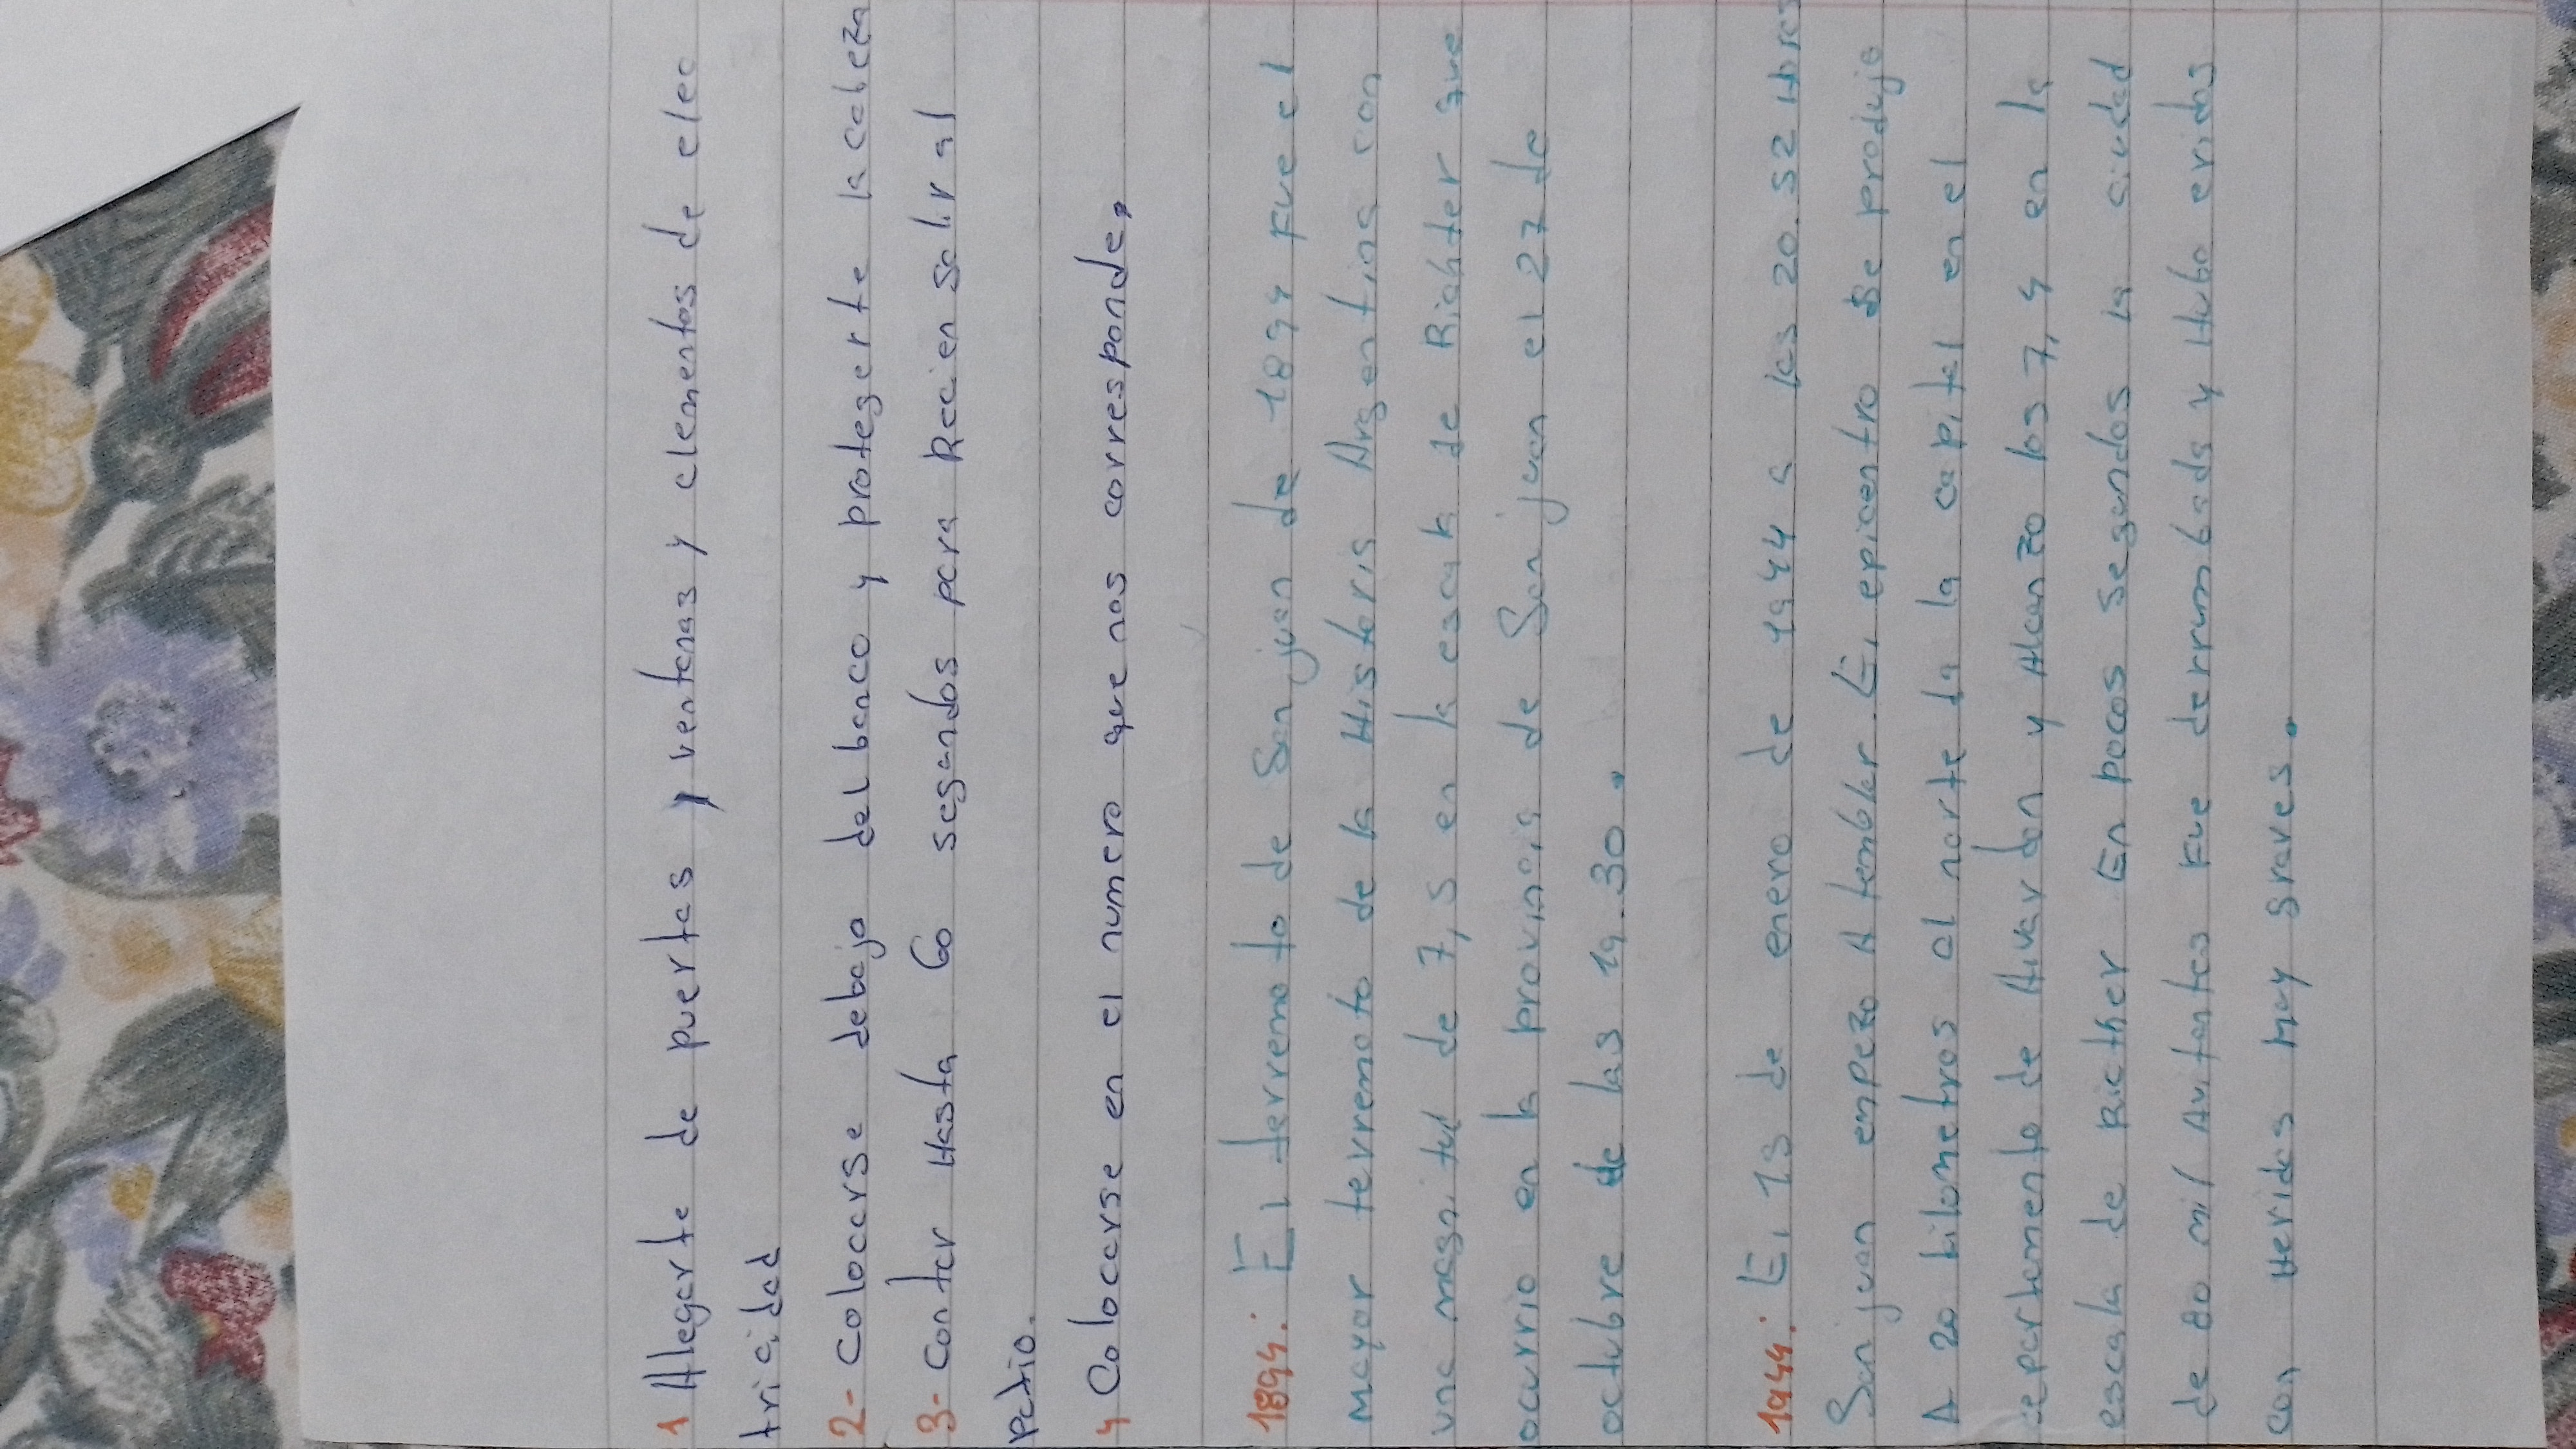 1 Alegarte de puertas, ventanas y elementos de elec
tricidad
2- Colocarse debajo del banco y protegerte la cabeza
3- Contar Hasta 60 segundos para Recien salir al
patio.
4 Colocarse en el numero que nos corresponde.
1894: El terremoto de San juan de 1894 Fue el
mayor terremoto de la Historis Argentina con
una magnitud de 7,5 en la escala de Righter que
ocurrio en la provincia de San juan el 27 de
octubre de las 19.30.
1944: El 15 de enero de 1944 a las 20.52 Hores
San juan empezo A temblar. El epicentro se produjo
A 20 kilometros al norte da la capital en el
departamento de Alvardon y Alcanzo los 7,4 en la
escala de Ricther En pocos segundos la ciudad
de 80 mil Avitantes Fue derrumbada y Hubo eridos
con Heridas muy graves.